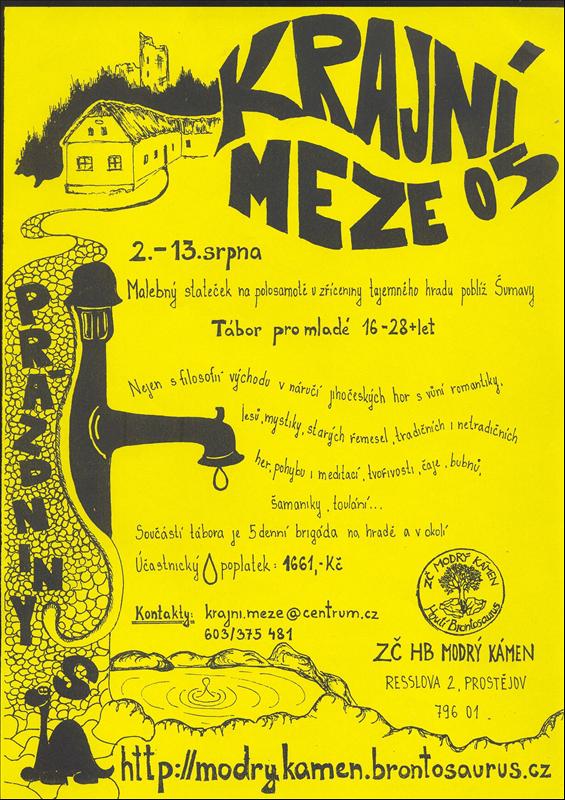 KRAJNÍ
MEZE 05
2.-13.srpna
Malebný stateček na polosamotě u zříceniny tajemného hradu poblíž Šumavy
Tábor pro mladé 16-28+let
Nejen s filosofií východu v náručí jihočeských hor s vůní romantiky,
lesů, mystiky, starých řemesel, tradičních i netradičních
her, pohybu i meditací, tvořivosti, čaje, bubnů,
šamaniky, toulání...
Součástí tábora je 5denní brigáda na hradě a v okolí
Účastnický poplatek: 1661,-Kč
Kontakty: krajni.meze@centrum.cz
603/375 481
ZČ MODRÝ KÁMEN
Hnutí Brontosaurus
ZČ HB MODRÝ KÁMEN
RESSLOVA 2, PROSTĚJOV
796 01.
PRÁZDNINY
S
http://modrykamen.brontosaurus.cz